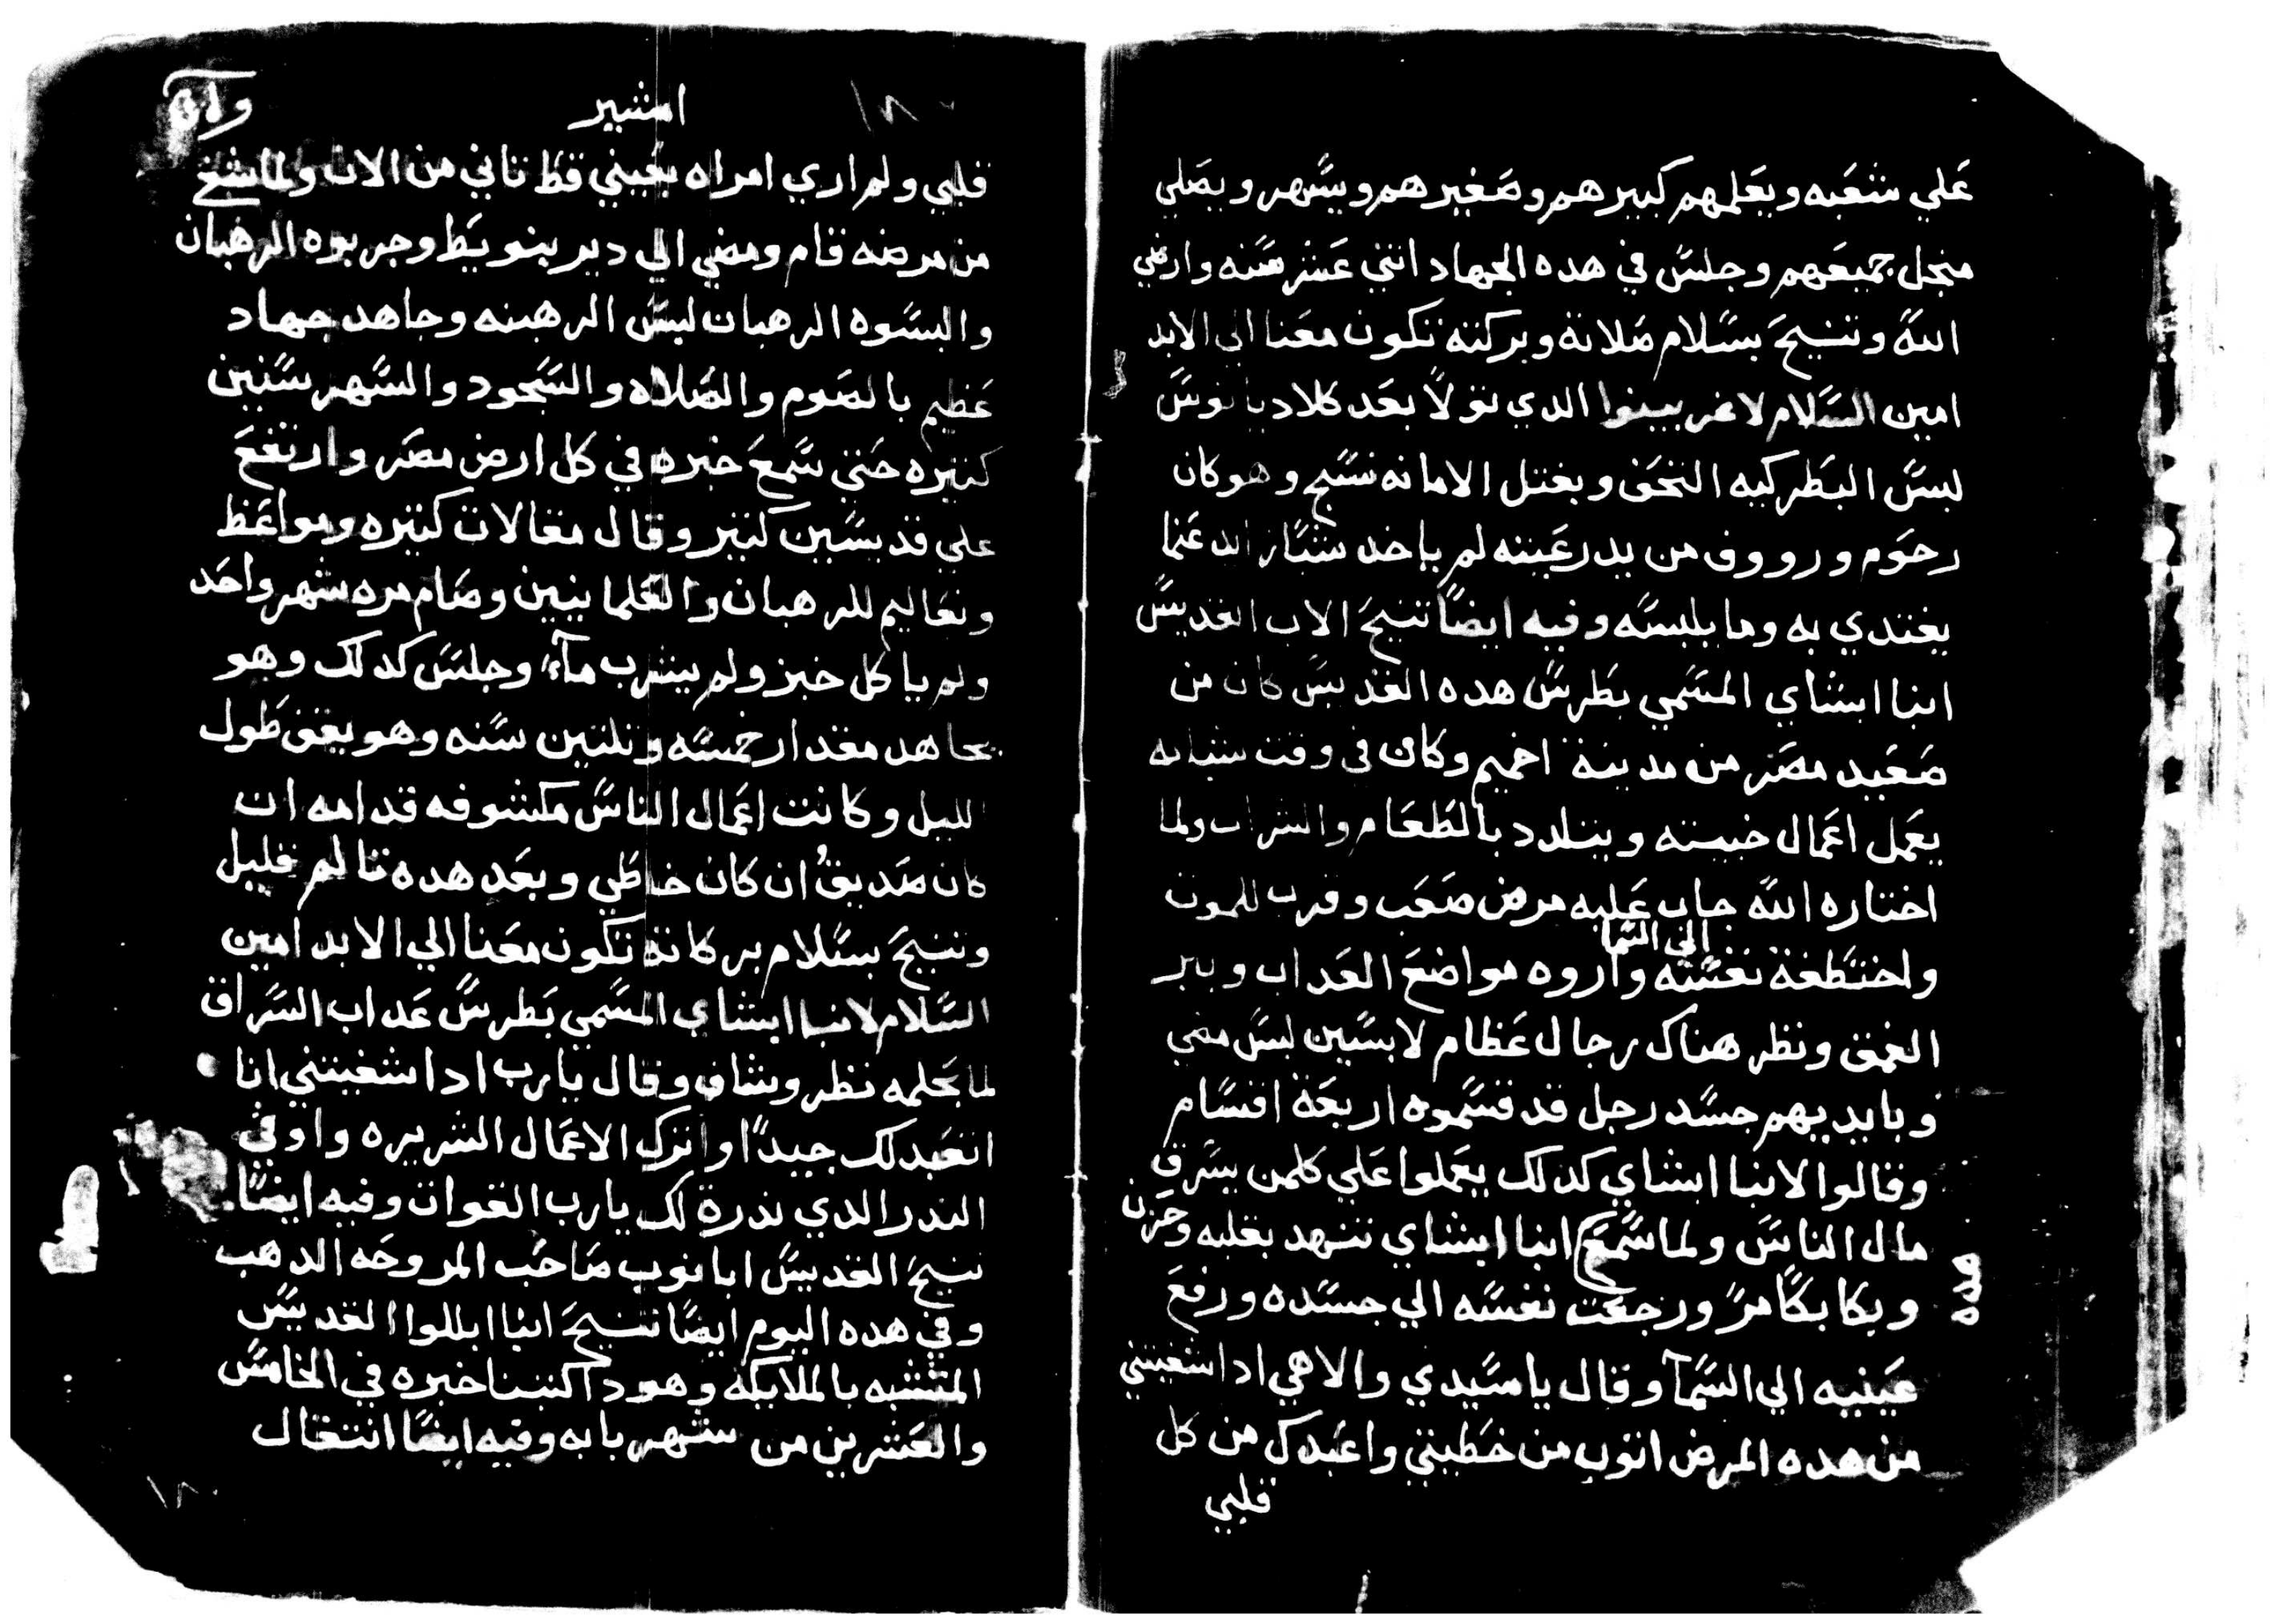 علي شعبه ويعلمهم كبيرهم وصغيرهم ويسهر ويصلي
منجل جميعهم وجلس في هده الجهاد اتني عشر سنه وارضي
الله وتنيح بسلام صلاته وبركته تكون معنا الي الابد
امين السلام لاغربينوا الدي تولا بعد كلاديانوس
لبس البطركيه التحق وبعتل الامانه نسبح وهو كان
رحوم ورووف من يد رعيته لم ياخد شيا زايد عنما
يقتدي به وما يلبسه وفيه ايضا تنيح الاب القديس
انبا ابشاي المسمي بطرس هده القديس كان من
صعيد مصر من مدينة اخميم وكان في وقت شبابه
يعمل اعمال خبيته ويتلدد بالطعام والشراب ولما
اختاره الله جاب عليه مرض صعب وقرب للموت
الي السما
ولختطفة نفسه واروه مواضع العداب وبير
الغمق ونظر هناك رجال عظام لابسين لبس مضي
وبايديهم جسد رجل قد قسموه اربعة اقسام
وقالوا لانبا ابشاي كدلك يعملوا علي كلمن يسرق
مال الناس ولما سمع انبا ابشاي تنهد بقلبه وحزن
وبكا بكا مر ورجعت نفسه الي جسده ورفع
هده
عينيه الي السمآ وقال ياسيدي والاهي ادا شفيتني
من هده المرض اتوب من خطيتي واعبدك من كل
قلبي
امشير
١٨٠
قلبي ولم اري امراه بعيني قط تاني من الان ولما شفي
من مرضه قام ومضي الي دير بنويط وجربوه الرهبان
والبسوه الرهبان لبس الرهبنه وجاهد جهاد
عظيم بالصوم والصلاه والسجود والسهر سنين
كتيره حتي سمع خبره في كل ارض مصر وارتفع
علي قديسين كتير وقال مقالات كتيره ومواعظ
وتعاليم للرهبان والعلمانيين وصام مره شهر واحد
ولم ياكل خبز ولم يشرب مآء وجلس كدلك وهو
يجاهد مقدار خمسه وتلتين سنه وهو يقف طول
الليل وكانت اعمال الناس مكشوفه قدامه ان
كان صديق ان كان خاطي وبعد هده تالم قليل
وتنيح بسلام بركاته تكون معنا الي الابد امين
السلام لانبا ابشاي المسمي بطرس عداب السراق
لما بحلمه نظر وشاف وقال يارب ادا شفيتني انا
اتعبد لك جيدا واترك الاعمال الشريره واوفي
الندر الدي ندرة لك يارب القوات وفيه ايضا
تنيح القديس ابانوب صاحب المروحه الدهب
وفي هده اليوم ايضا تنيح انبا ابللوا القديس
المتشبه بالملايكة وهودا كتبنا خبره في الخامس
والعشرين من شهر بابه وفيه ايضا انتقال
١٨٠